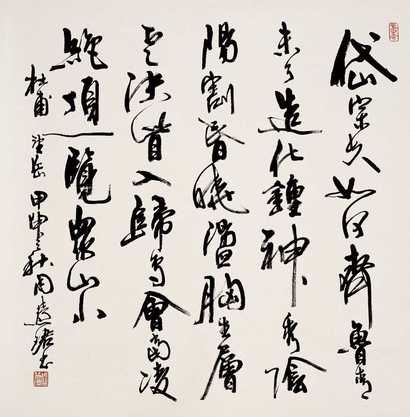 岱宗夫如何齊魯青
未了造化鐘神秀陰
陽割昏曉盪胸生層
云決眥入歸鳥會當凌
絶頂一覽衆山小
杜甫望岳甲申之秋周慧珺书